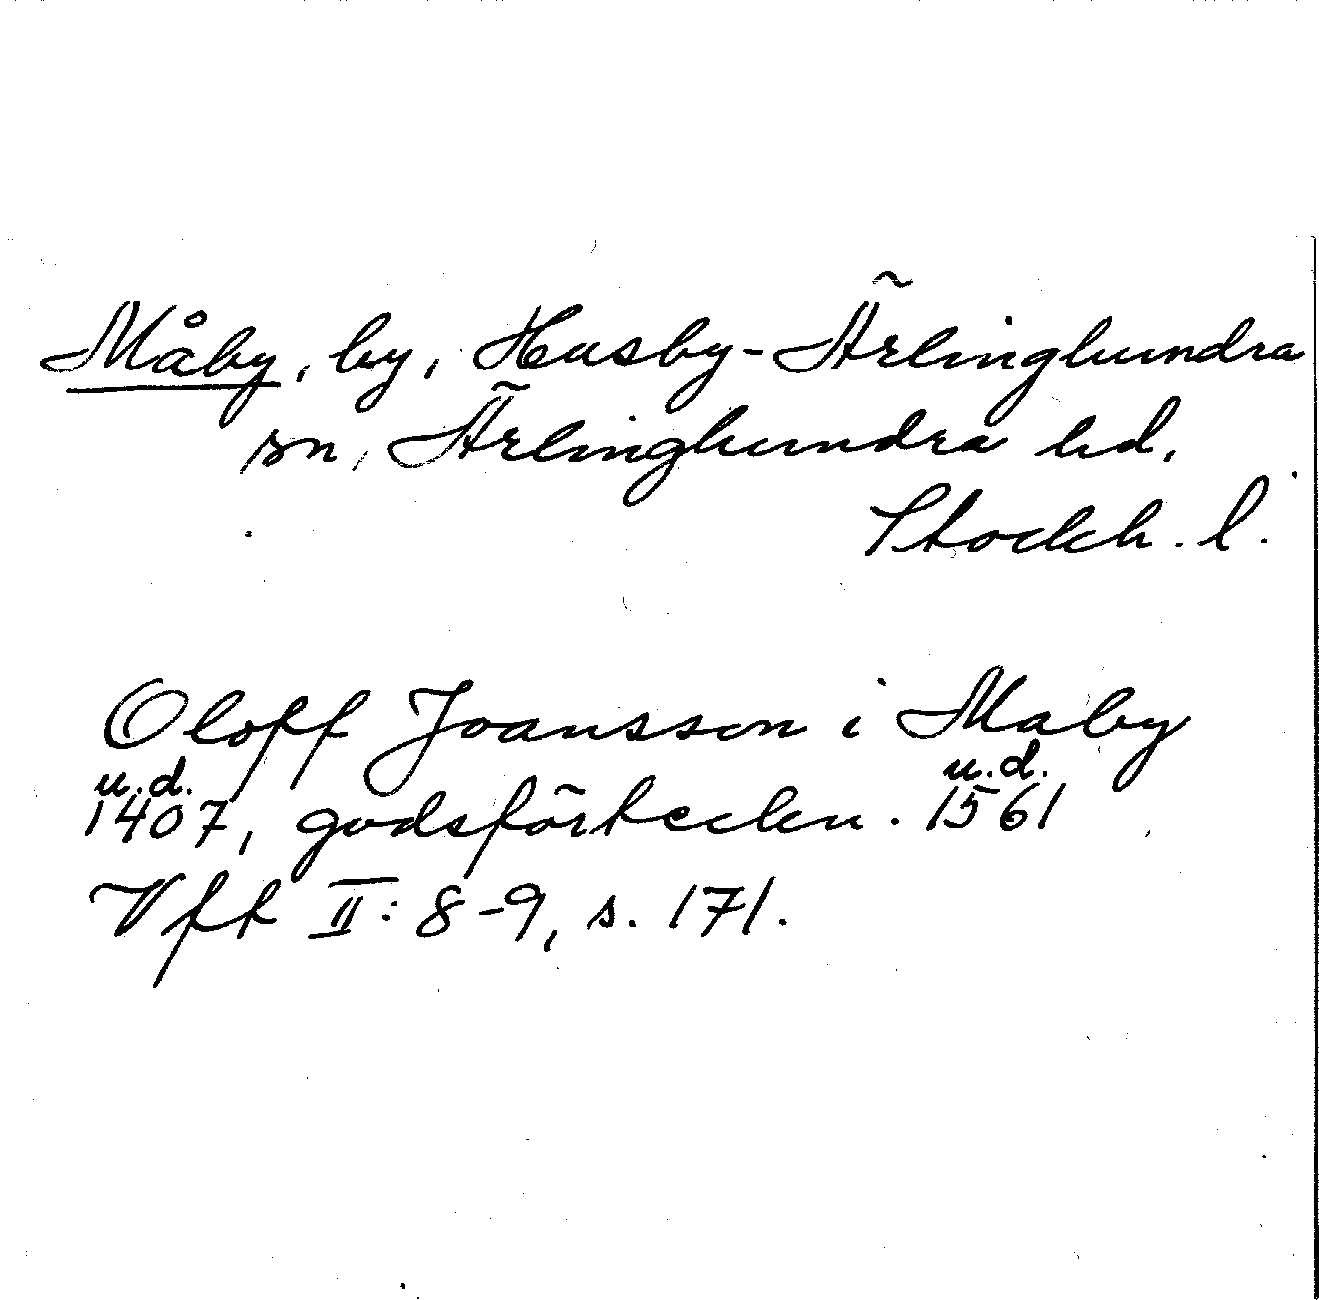 Måby, by, Husby-Ärlinghundra
sn, Ärlinghundra hd.
Stockh. l.
Oloff Joansson i Maby
u.d. u.d.
1407, godsförteckn. 1561
Vft II: 8-9, s. 171.